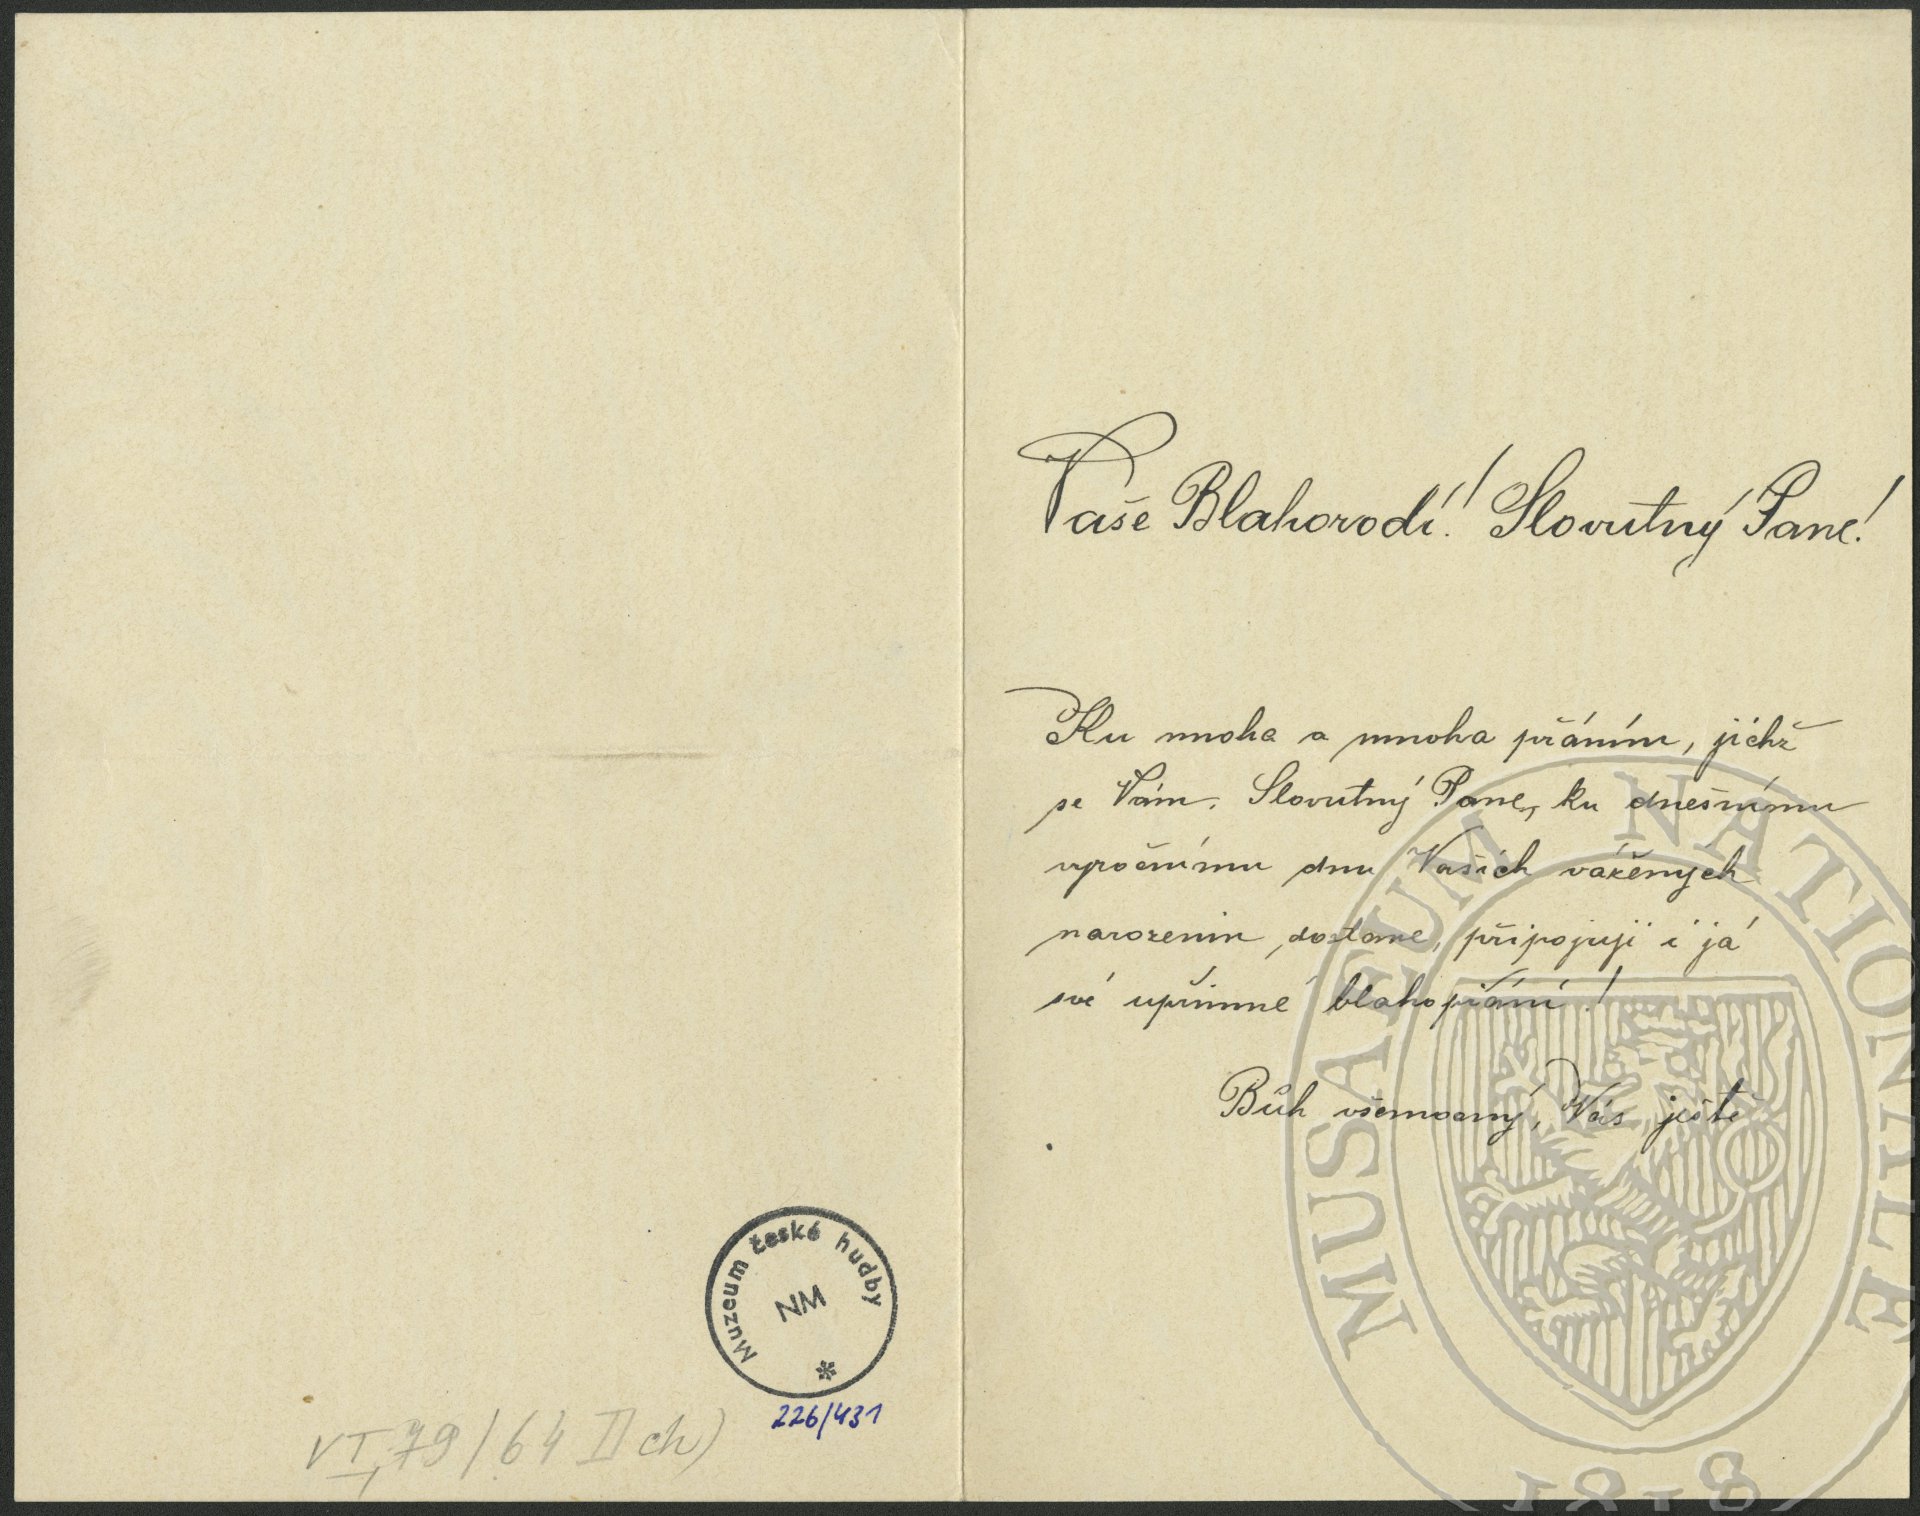 Vaše Blahorodí! Slovutný Pane!
Ku mnoha a mnoha přáním, jichž
se Vám, Slovutný Pane, ku dnešnímu
výročnímu dnu Vašich vážených
narozenin dostane, připojuji i já
své upřímné blahopřání!
Bůh všemocný, Vás ještě
Muzeum české hudby
NM
226/431
VI, 79/64 II ch)
MUSAEUM NATIONALE
1818